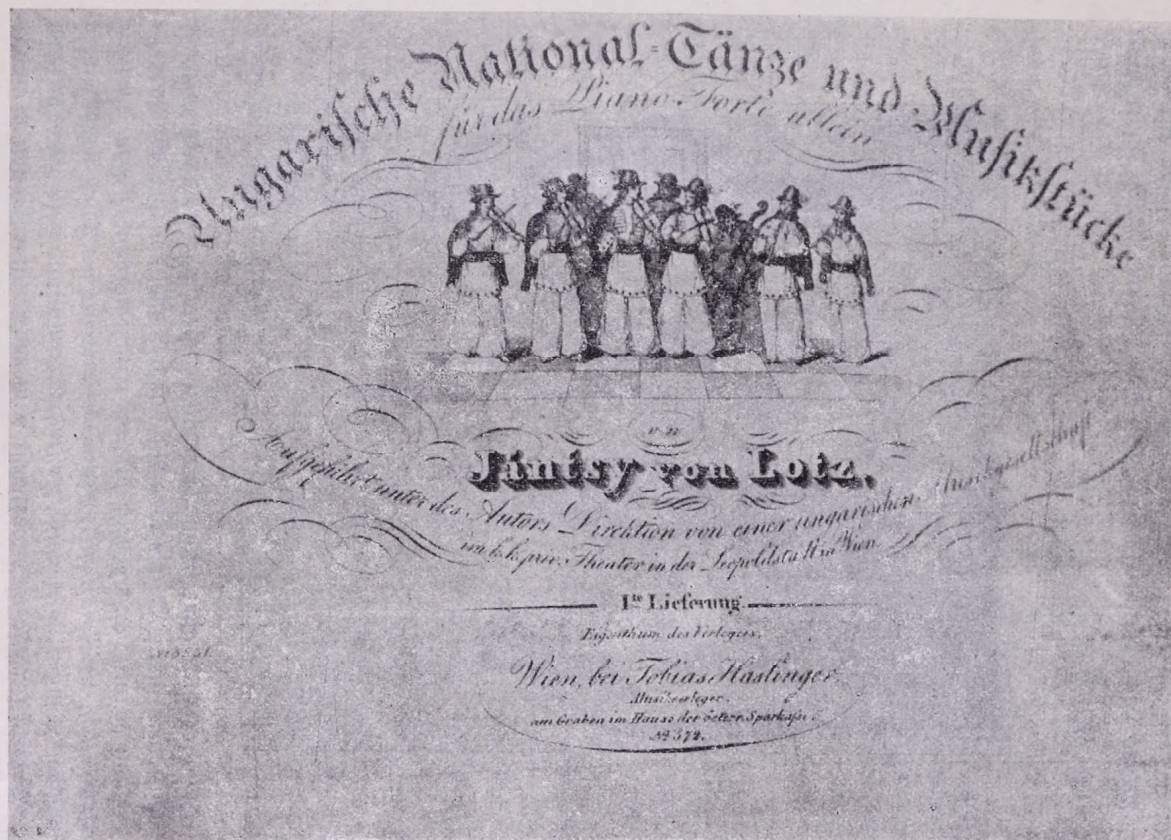 Ungarische National-Tänze und Musikstücke
für das Piano-Forte allein
von
Jántsy von Lotz.
Aufgeführt unter des Autors Direktion von einer ungarischen Musikgesellschaft
im k.k. priv. Theater in der Leopoldstadt in Wien
Ite Lieferung.
Eigenthum des Verlegers.
Wien, bei Tobias Haslinger
Musikverleger.
am Graben im Hause der österr. Sparkasse.
No. 572.